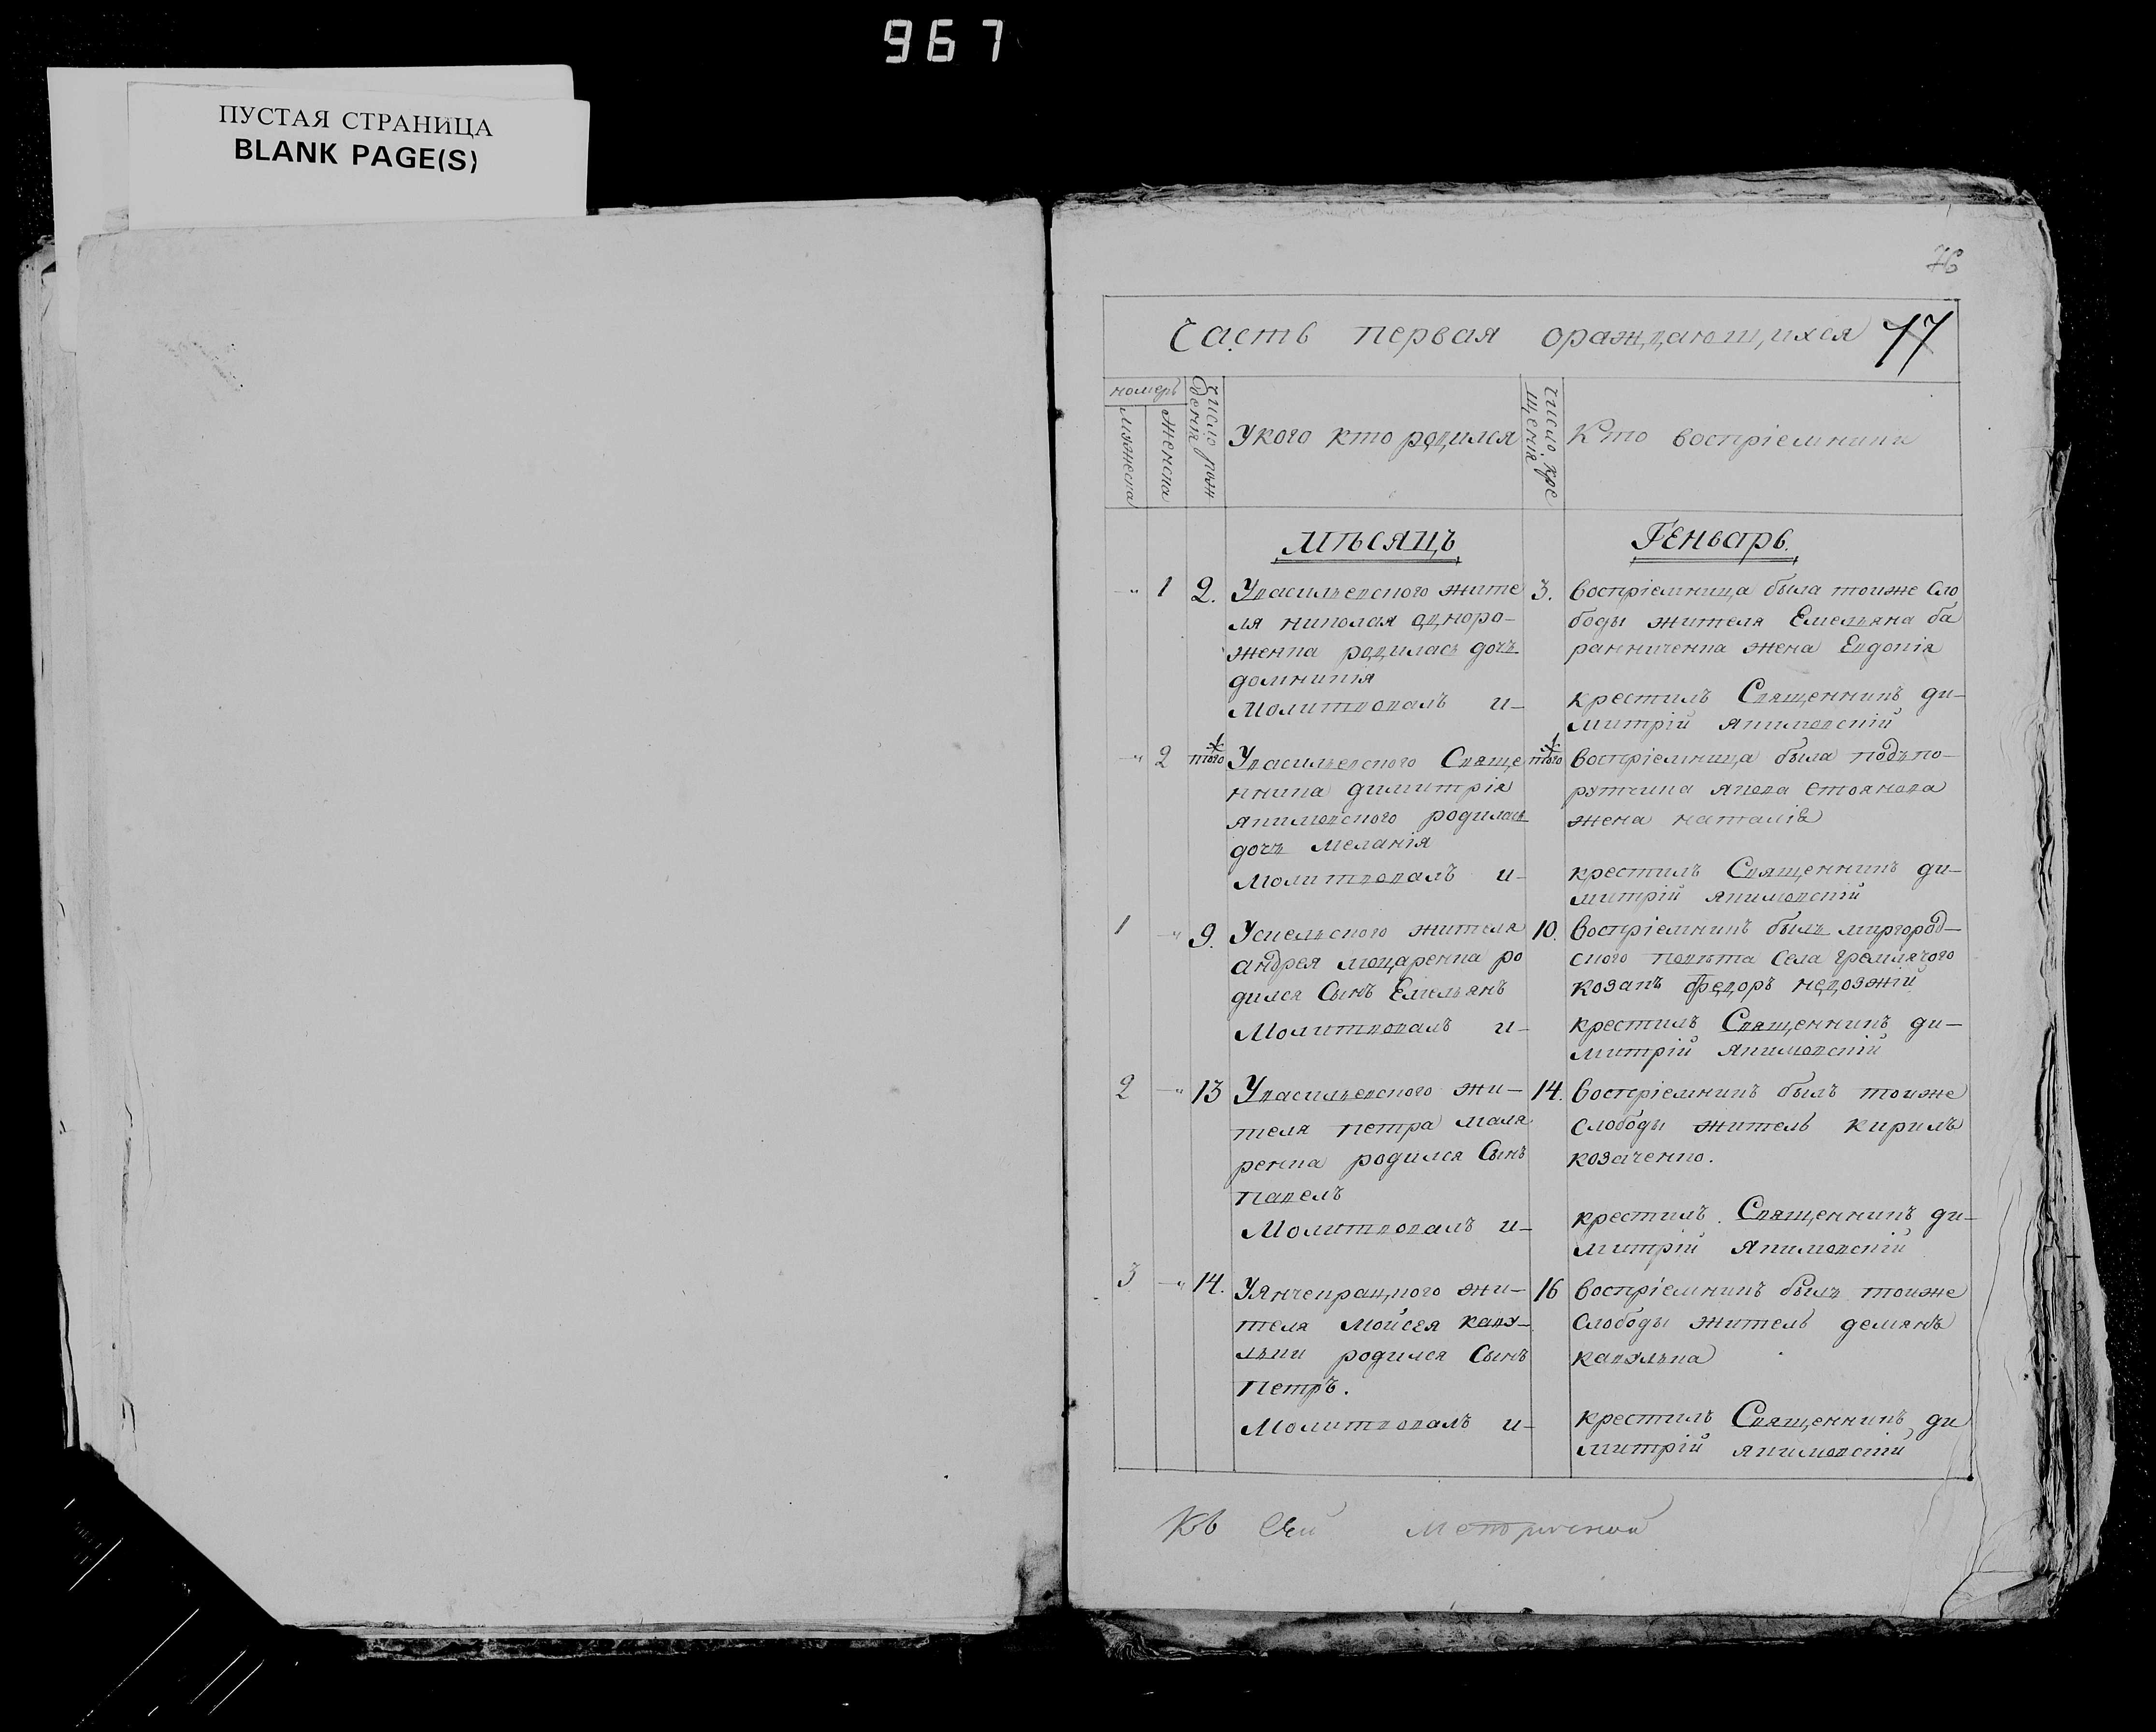 967
ПУСТАЯ СТРАНИЦА
BLANK PAGE(S)
76
Часть первая ораждающихся 77
номеръ
мужеска
женска
Число рож
дения
Укого кто родился
Число кре
щения
Кто воспріемники
МѢСЯЦЪ
Генварь.
-„ 1 2. Увасильевского жите
ля николая одноро-
женка родилась дочь
домникія
Молитвовалъ и-
3. воспріемница была тоиже сло
боды жителя Емельяна ба
ранниченка жена Евдокія
крестилъ Священникъ ди-
митрій якимовскій
-„ 2 того Увасильевского Свяще
нника димитрія
якимовского родилась
дочь меланія
Молитвовалъ и-
того воспріемница была подъпо-
ручика якова стоянова
жена наталія
крестилъ Священникъ ди-
митрій якимовскій
1 -„ 9. Усиельского жителя
андрея моцаренка ро
дился Сынъ Емельянъ
Молитвовалъ и-
10. воспріемникъ былъ миргород-
ского повѣта села гремячого
козакъ федоръ недозжій
крестилъ Священникъ ди-
митрій якимовскій
2 -„ 13 Увасильевского жи-
теля петра маля
ренка родился Сынъ
павелъ
Молитвовалъ и-
14. воспріемникъ былъ тоиже
слободы житель кирилъ
козаченко.
крестилъ Священникъ ди-
митрій Якимовскій
3 -„ 14. Уянчекрацкого жи-
теля мойсея каву-
льки родился Сынъ
петръ.
Молитвовалъ и-
16 воспріемникъ былъ тоиже
слободы житель демянъ
кавулька
крестилъ Священникъ ди
митрій якимовскій
Къ Сей Метрической